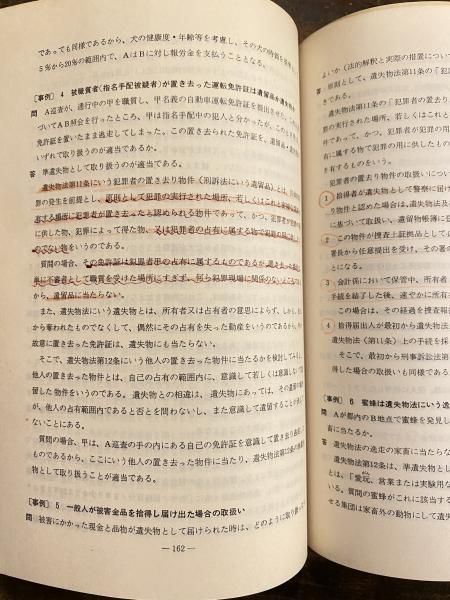 であっても同様であるから、犬の健康度・年齢等を考慮し、その犬の時価を
5％から20％の範囲内で、AはBに対し報労金を支払うこととなる。
〔事例〕 4 被職質者（指名手配被疑者）が置き去った運転免許証は遺留品か遺失物か
問 A巡査が、逃行中の甲を職質し、甲名義の自動車運転免許証を提出させ、
づいてAB照会を行ったところ、甲は指名手配中の犯人と分かったが、このとき
免許証を置いたまま逃走してしまった。この置き去られた免許証を、遺留品・
いずれで取り扱うのが適当であるか。
答 準遺失物として取り扱うのが適当である。
遺失物法第11条にいう犯罪者の置き去り物件（刑訴法にいう遺留品）とは、
罪の発生を前提とし、原則として犯罪の実行された場所、若しくはこれと密接
有する場所に犯罪者が置き去ったと認められる物件であって、かつ、犯罪者が
に供した物、犯罪によって得た物、又は犯罪者の占有に属する物で犯罪の
のでない物をいうのである。
質問の場合、その免許証は犯罪者甲の占有に属するものであるが、置き去った
単に不審者として職質を受けた場所にすぎず、何ら犯罪現場に関係のないところ
から、遺留品に当たらない。
また、遺失物法にいう遺失物とは、所有者又は占有者の意思によらず、しかも
から奪われたものでなくして、偶然にその占有を失った動産をいうのであるから、
故意に置き去った免許証は、遺失物にも当たらない。
そこで、遺失物法第12条にいう他人の置き去った物件に当たるかを検討してみる
他人の置き去った物件とは、自己の占有の範囲内に、意識して若しくは意識しない
留した物件をいうのである。 遺失物との相違は、遺失物にあっては、その遺留の場
が、他人の占有範囲内であると否とを問わないし、また意識して遺留することが
ないことにある。
質問の場合、甲は、A巡査の手の内にある自己の免許証を意識して置き去り逃走
ものであるから、ここにいう他人の置き去った物件に当たり、質問の場合、
物として取り扱うことが適当である。
〔事例〕 5 一般人が被害金品を拾得し届け出た場合の取扱い
問 被害にかかった現金と品物が遺失物として届けられた時は、どのように取り扱った
— 162 —
よいか（法的解釈と実際の措置につい
答 原則として、遺失物法第11条の「犯罪
きである。
遺失物法第11条の「犯罪者の置き去り
罪の実行された場所、若しくはこれと
件であって、かつ、犯罪者が犯罪の用
有に属する物で犯罪の用に供したもの
有するものをいう。
犯罪者の置き去り物件の取扱いについ
1 拾得者が遺失物として警察に届け
り物件と認めた場合は、遺失物法及
に基づいて取扱い、遺留物帳簿に任
2 この物件が捜査上証拠品として必
署長から任意提出を受け、その署の
とになる。
3 会計係において保管中、所有者
手続を結了した後、速やかに所有者
この場合は、その経過を捜査報
4 拾得届出人が最初から遺失物
第11条）上の手続を採
そこで、最初から刑事訴訟法第
得した場合の取扱いも同様である
〔事例〕 6 蜜蜂は遺失物法にいう逸
問 Aが都内のB地点で蜜蜂を発見し
畜に当たるか。
答 遺失物法の逸走の家畜に当たらな
遺失物法第12条は、準遺失物とし
とは、「愛玩、営業または実験用な
いる。質問の蜜蜂がこれに該当する
せる集団は家畜外の動物にして遺失